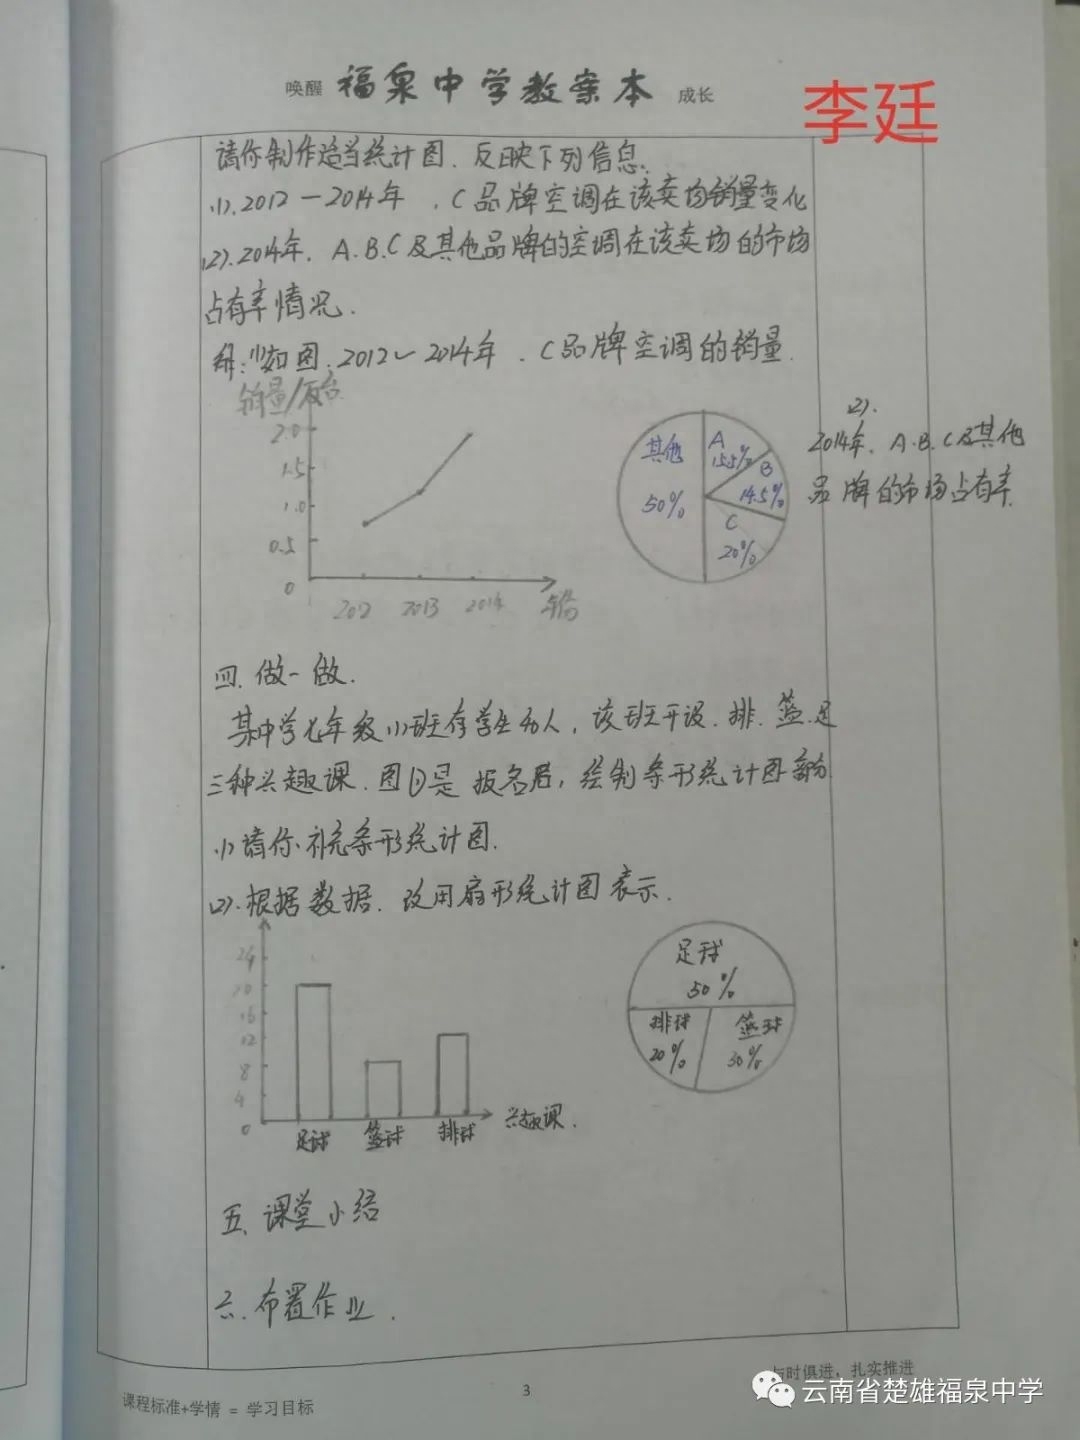 唤醒 福泉中学教案本 成长
李廷
请你制作适当统计图.反映下列信息.
(1).2012—2014年,C品牌空调在该卖场销量变化
(2).2014年.A.B.C及其他品牌的空调在该卖场的市场
占有率情况.
解:(1)如图.2012~2014年.C品牌空调的销量.
销量/万台
2.0
1.5
1.0
0.5
0
2012 2013 2014 年份
其他
50%
A
15.5%
B
14.5%
C
20%
(2).
2014年.A.B.C及其他
品牌的市场占有率.
四.做一做.
某中学七年级(1)班有学生40人,该班开设.排.篮.足
三种兴趣课.图①是报名后,绘制条形统计图部分
(1)请你补充条形统计图.
(2).根据数据.改用扇形统计图表示.
24
20
16
12
8
4
0
足球 篮球 排球 兴趣课.
足球
50%
排球
20%
篮球
30%
五.课堂小结
六.布置作业.
与时俱进,扎实推进
课程标准+学情 = 学习目标
3
云南省楚雄福泉中学